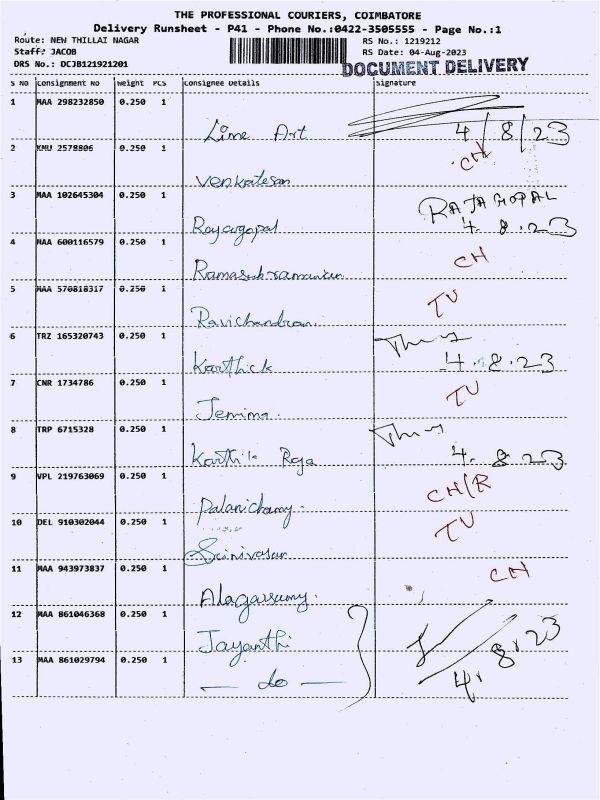 THE PROFESSIONAL COURIERS, COIMBATORE
Delivery Runsheet - P41 - Phone No.:0422-3505555 - Page No.:1
Route: NEW THILLAI NAGAR RS No.: 1219212
Staff: JACOB RS Date: 04-Aug-2023
DRS No.: DCJB121921201 DOCUMENT DELIVERY
S NO Consignment No Weight PCS Consignee Details Signature
1 MAA 298232850 0.250 1
Lime Art 4/8/23
2 KMU 2578806 0.250 1 CH
Venkatesan
3 MAA 102645304 0.250 1 RAJAGOPAL
Rajagopal 4.8.23
4 MAA 600116579 0.250 1 CH
Ramasubramanian
5 MAA 570818317 0.250 1 TU
Ravichandran.
6 TRZ 165320743 0.250 1
Karthick 4.8.23
7 CNR 1734786 0.250 1 TU
Jemima.
8 TRP 6715328 0.250 1
Karthik Roja 4.8.23
9 VPL 219763069 0.250 1 CH/R
Palanichamy.
10 DEL 910302044 0.250 1 TU
Srinivasan
11 MAA 943973837 0.250 1 CH
Alagarsamy.
12 MAA 861046368 0.250 1
Jayanthi 4.8.23
13 MAA 861029794 0.250 1
— do —